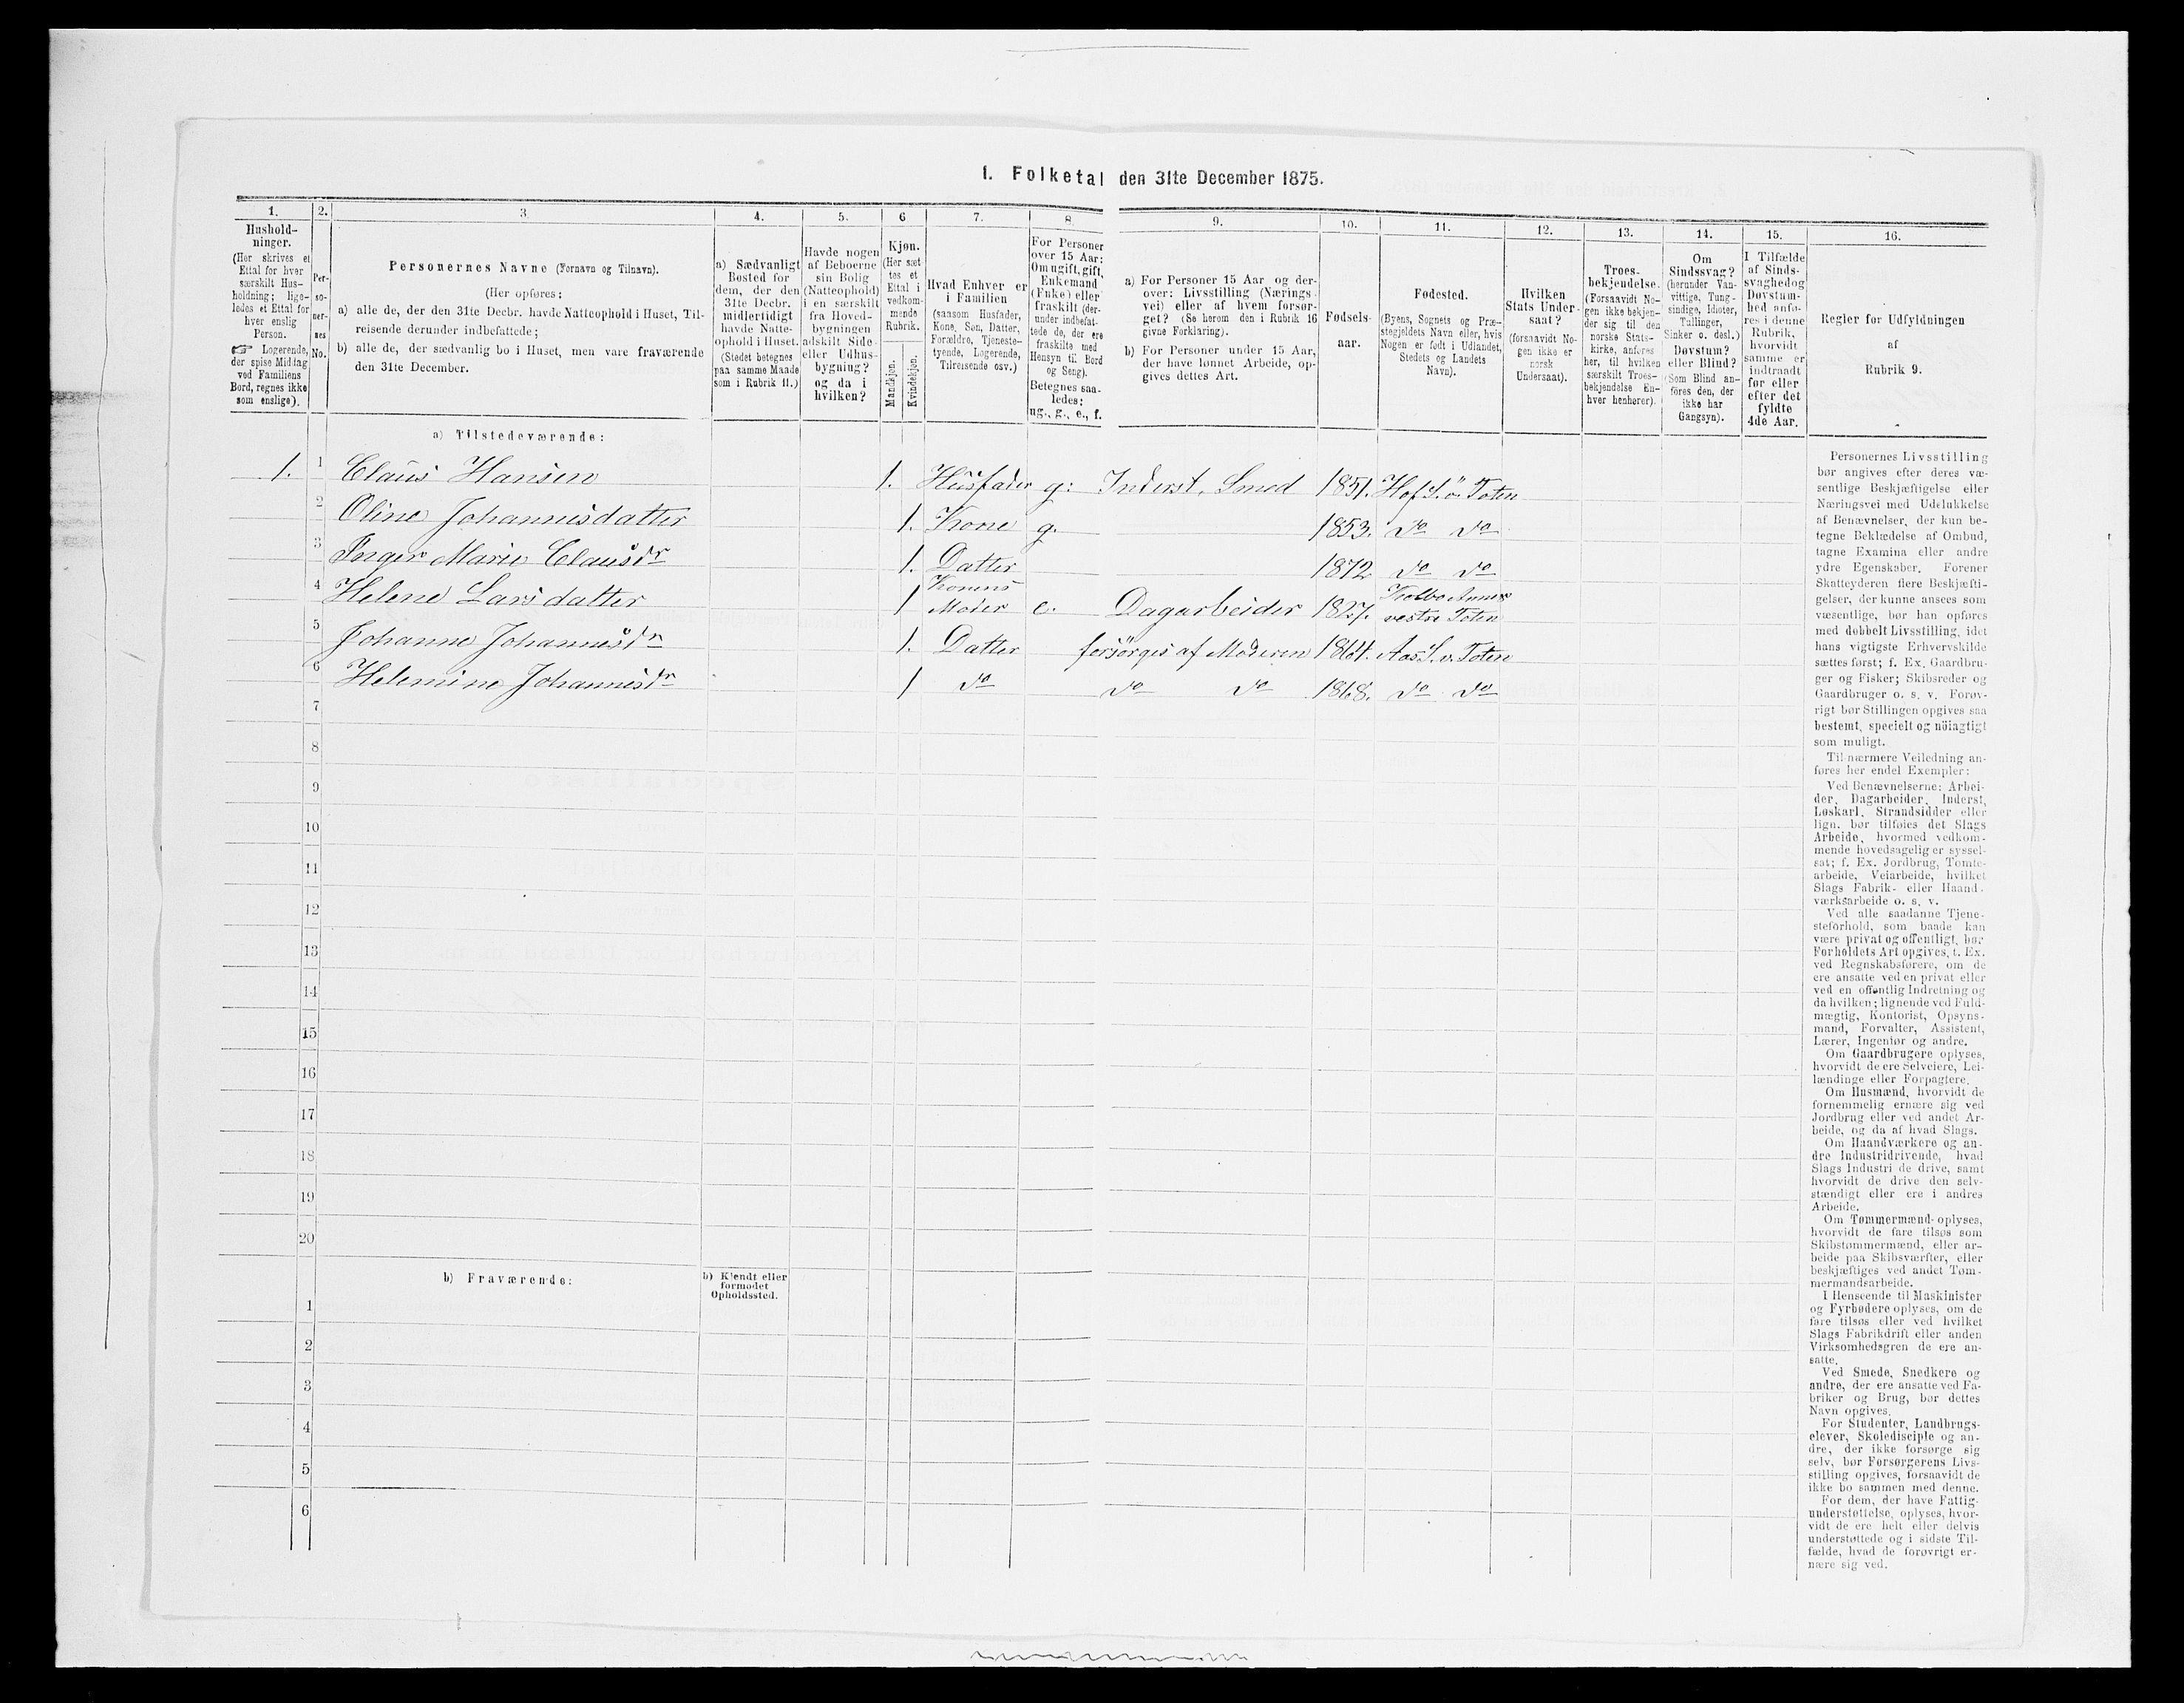 1. Folketal den 31te December 1875.
1.
2.
3
4.
5.
6
7.
8.
9.
10.
11.
12.
13.
14.
15.
16.
Hushold-
ninger.
(Her skrives et
Ettal for hver
særskilt Hus-
holdning; lige-
ledes et Ettal for
hver enslig
Person.
☞ Logerende,
der spise Middag
ved Familiens
Bord, regnes ikke
som enslige).
Per-
so-
ner-
nes
No.
Personernes Navne (Fornavn og Tilnavn).
(Her opføres:
a) alle de, der den 31te Decbr. havde Natteophold i Huset, Til-
reisende derunder indbefattede;
b) alle de, der sædvanlig bo i Huset, men vare fraværende
den 31te December.
a) Sædvanligt
Bosted for
dem, der den
31te Decbr.
midlertidigt
havde Natte-
ophold i Huset.
(Stedet betegnes
paa samme Maade
som i Rubrik 11.)
Havde nogen
af Beboerne
sin Bolig
(Natteophold)
i en særskilt
fra Hoved-
bygningen
adskilt Side-
eller Udhus-
bygning?
og da i
hvilken?
Kjøn.
(Her sæt
tes et
Ettal i
vedkom-
mende
Rubrik.
Mandkjøn.
Kvindekjøn.
Hvad Enhver er
i Familien
(saasom Husfader,
Kone, Søn, Datter,
Forældre, Tjeneste-
tyende, Logerende,
Tilreisende osv.)
For Personer
over 15 Aar:
Om ugift, gift,
Enkemand
(Enke) eller
fraskilt (der-
under indbefat-
tede de, der ere
fraskilte med
Hensyn til Bord
og Seng).
Betegnes saa-
ledes:
ug., g., e., f.
a) For Personer 15 Aar og der-
over: Livsstilling (Nærings-
vei) eller af hvem forsør-
get? (Se herom den i Rubrik 16
givne Forklaring).
b) For Personer under 15 Aar,
der have lønnet Arbeide, op-
gives dettes Art.
Fødsels-
aar.
Fødested.
(Byens, Sognets og Præ-
stegjeldets Navn eller, hvis
Nogen er født i Udlandet,
Stedets og Landets
Navn).
Hvilken
Stats Under-
saat?
(forsaavidt No-
gen ikke er
norsk
Undersaat).
Troes-
bekjendelse.
(Forsaavidt No-
gen ikke bekjen-
der sig til den
norske Stats-
kirke, anføres
her, til hvilken
særskilt Troes-
bekjendelse En-
hver henhører).
Om
Sindssvag?
(herunder Van-
vittige, Tung-
sindige, Idioter,
Tullinger,
Sinker o. desl.)
Døvstum?
eller Blind?
(Som Blind an-
føres den, der
ikke har
Gangsyn).
I Tilfælde
af Sinds-
svaghed og
Døvstum-
hed anfø-
res i denne
Rubrik,
hvorvidt
samme er
indtraadt
før eller
efter det
fyldte
4de Aar.
Regler for Udfyldningen
af
Rubrik 9.
a) Tilstedeværende:
1. 1 Claus Hansen 1. Husfader g: Inderst, Smed 1851. Hof S. ö. Toten
2 Oline Johannisdatter 1. Kone g. 1853. do do
3 Inger Marie Clausdr 1. Datter 1872 do do
4 Helene Larsdatter 1 Konens Moder e. Dagarbeider 1827. Kolbo Annex vestre Toten
5 Johanne Johannisdr 1. Datter forsörges af Moderen 1864. Aas S. v. Toten
6 Helemine Johannisdr 1 do do do 1868. do do
7
8
9
10
11
12
13
14
15
16
17
18
19
20
b) Fraværende:
b) Kjendt eller
formodet
Opholdssted.
1
2
3
4
5
6
Personernes Livsstilling
bør angives efter deres væ-
sentlige Beskjæftigelse eller
Næringsvei med Udelukkelse
af Benævnelser, der kun be-
tegne Beklædelse af Ombud,
tagne Examina eller andre
ydre Egenskaber. Forener
Skatteyderen flere Beskjæfti-
gelser, der kunne ansees som
væsentlige, bør han opføres
med dobbelt Livsstilling, idet
hans vigtigste Erhvervskilde
sættes først; f. Ex. Gaardbru-
ger og Fisker; Skibsreder og
Gaardbruger o. s. v. Forøv-
rigt bør Stillingen opgives saa
bestemt, specielt og nöiagtigt
som muligt.
Til nærmere Veiledning an-
føres her endel Exempler:
Ved Benævnelserne: Arbei-
der, Dagarbeider, Inderst,
Løskarl, Strandsidder eller
lign. bør tilføies det Slags
Arbeide, hvormed vedkom-
mende hovedsagelig er syssel-
sat; f. Ex. Jordbrug, Tomte-
arbeide, Veiarbeide, hvilket
Slags Fabrik- eller Haand-
værksarbeide o. s. v.
Ved alle saadanne Tjene-
steforhold, som baade kan
være privat og offentligt, bør
Forholdets Art opgives, f. Ex.
ved Regnskabsførere, om de
ere ansatte ved en privat eller
ved en offentlig Indretning og
da hvilken; lignende ved Fuld-
mægtig, Kontorist, Opsyns-
mand, Forvalter, Assistent,
Lærer, Ingeniør og andre.
Om Gaardbrugere oplyses,
hvorvidt de ere Selveiere, Lei-
lændinge eller Forpagtere.
Om Husmænd, hvorvidt de
fornemmelig ernære sig ved
Jordbrug eller ved andet Ar-
beide, og da af hvad Slags.
Om Haandværkere og an-
dre Industridrivende, hvad
Slags Industri de drive, samt
hvorvidt de drive den selv-
stændigt eller ere i andres
Arbeide.
Om Tømmermænd oplyses,
hvorvidt de fare tilsøs som
Skibstømmermænd, eller ar-
beide paa Skibsværfter, eller
beskjæftiges ved andet Tøm-
mermandsarbeide.
I Henseende til Maskinister
og Fyrbødere oplyses, om de
fare tilsøs eller ved hvilket
Slags Fabrikdrift eller anden
Virksomhedsgren de ere an-
satte.
Ved Smede, Snedkere og
andre, der ere ansatte ved Fa-
briker og Brug, bør dettes
Navn opgives.
For Studenter, Landbrugs-
elever, Skoledisciple og an-
dre, der ikke forsørge sig
selv, bør Forsørgerens Livs-
stilling opgives, forsaavidt de
ikke bo sammen med denne.
For dem, der have Fattig-
understøttelse, oplyses, hvor-
vidt de ere helt eller delvis
understøttede og i sidste Til-
fælde, hvad de forøvrigt er-
nære sig ved.